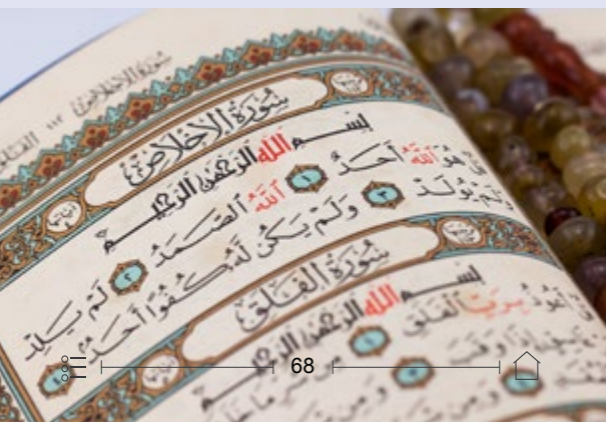 سُورَةُ الْإِخْلَاصِ ١١٢
سُورَةُ الْإِخْلَاصِ
بِسْمِ اللَّهِ الرَّحْمَٰنِ الرَّحِيمِ
هُوَ اللَّهُ أَحَدٌ ١ اللَّهُ الصَّمَدُ ٢ لَمْ يَلِدْ
وَلَمْ يُولَدْ ٣ وَلَمْ يَكُنْ لَهُ كُفُوًا أَحَدٌ ٤
سُورَةُ الْفَلَقِ
بِسْمِ اللَّهِ الرَّحْمَٰنِ الرَّحِيمِ
أَعُوذُ بِرَبِّ الْفَلَقِ ١ مِنْ شَرِّ مَا خَلَقَ
68